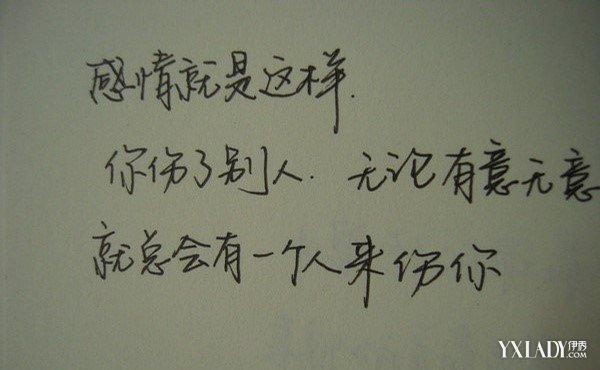 感情就是这样.
你伤了别人.无论有意无意
就总会有一个人来伤你
YXLADY伊秀.com